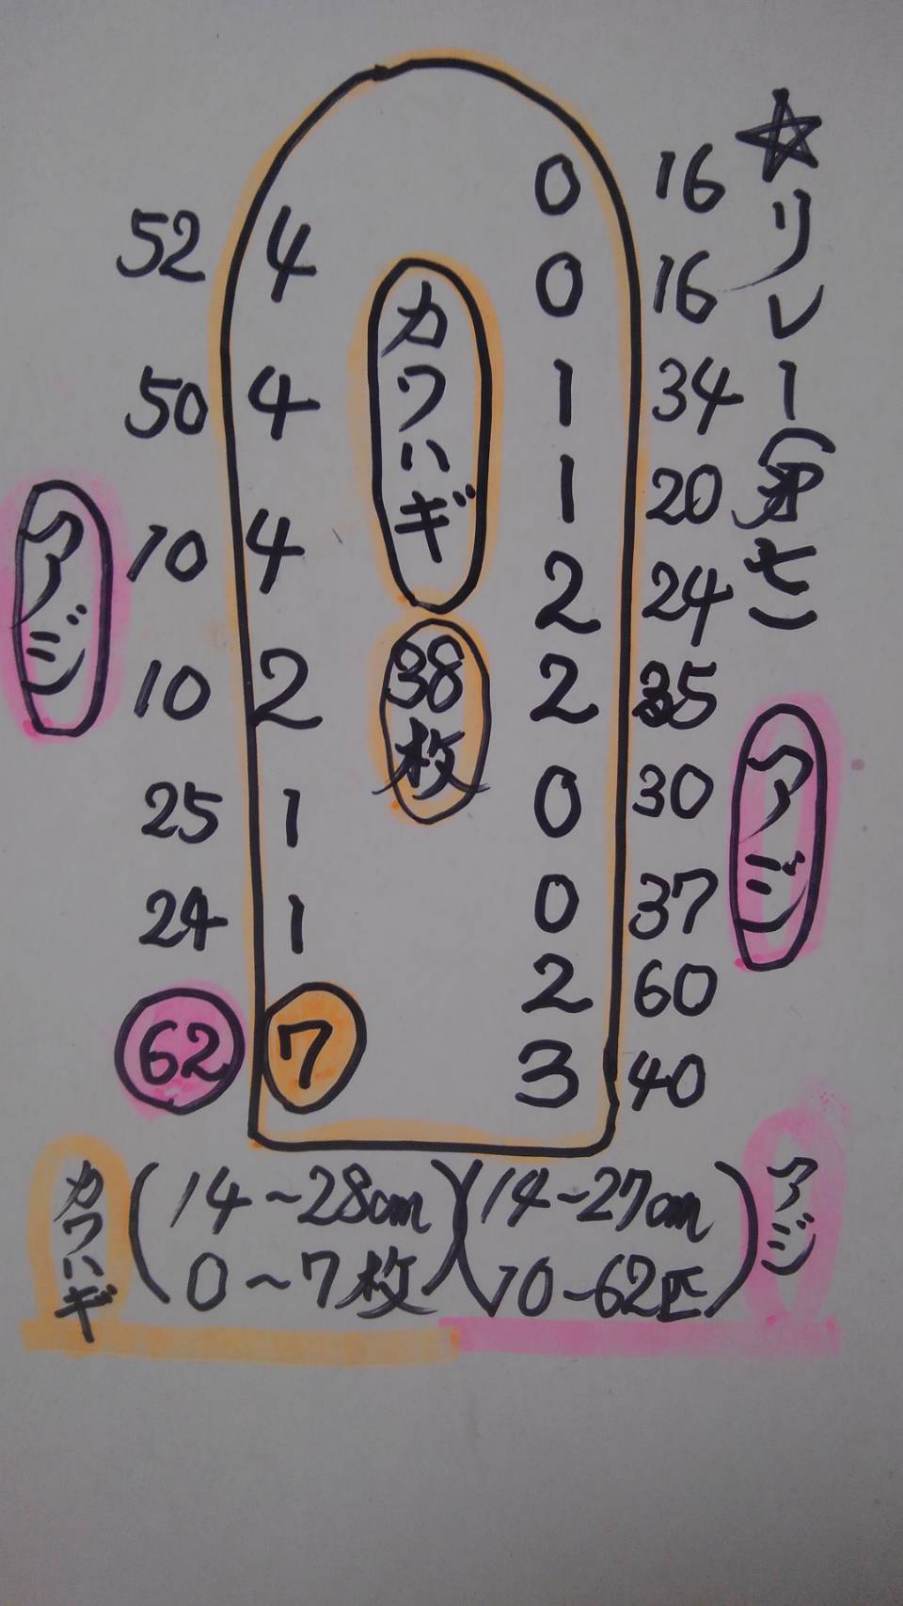 ☆リレー
0 16
52 4
0 16
カワハギ
50 4
1 34
1 20
アジ
10 4
2 24
38枚
10 2
2 35
アジ
25 1
0 30
24 1
0 37
2 60
62 7
3 40
カワハギ
(14~28cm
0~7枚)
(14~27cm
10~62匹)
アジ